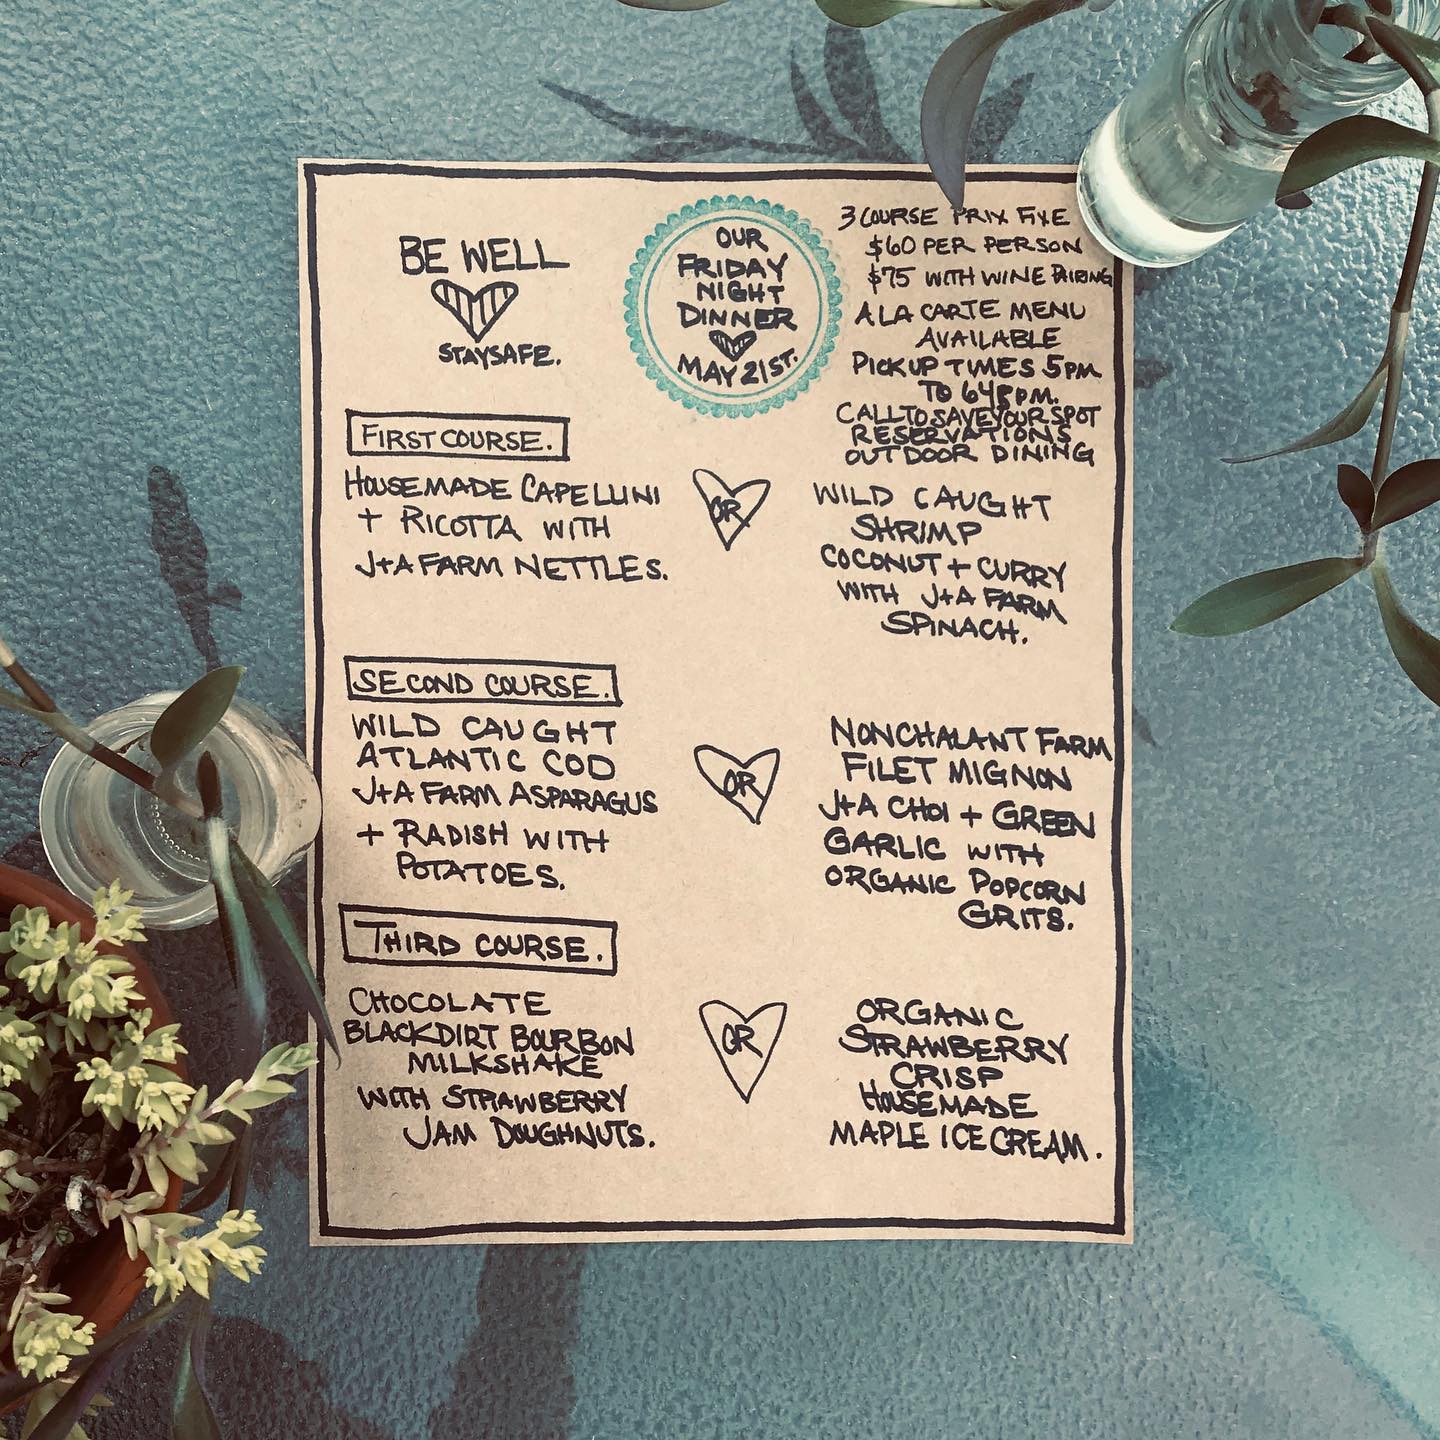 BE WELL
STAYSAFE.
OUR
FRIDAY
NIGHT
DINNER
MAY 21ST.
3 COURSE PRIX FIXE
$60 PER PERSON
$75 WITH WINE PAIRING
A LA CARTE MENU
AVAILABLE
PICKUP TIMES 5PM
TO 645PM.
CALL TO SAVE YOUR SPOT
RESERVATIONS
OUTDOOR DINING
FIRST COURSE.
HOUSEMADE CAPELLINI
+ RICOTTA WITH
J+A FARM NETTLES.
OR
WILD CAUGHT
SHRIMP
COCONUT + CURRY
WITH J+A FARM
SPINACH.
SECOND COURSE.
WILD CAUGHT
ATLANTIC COD
J+A FARM ASPARAGUS
+ RADISH WITH
POTATOES.
OR
NONCHALANT FARM
FILET MIGNON
J+A CHOI + GREEN
GARLIC WITH
ORGANIC POPCORN
GRITS.
THIRD COURSE.
CHOCOLATE
BLACKDIRT BOURBON
MILKSHAKE
WITH STRAWBERRY
JAM DOUGHNUTS.
OR
ORGANIC
STRAWBERRY
CRISP
HOUSEMADE
MAPLE ICE CREAM.